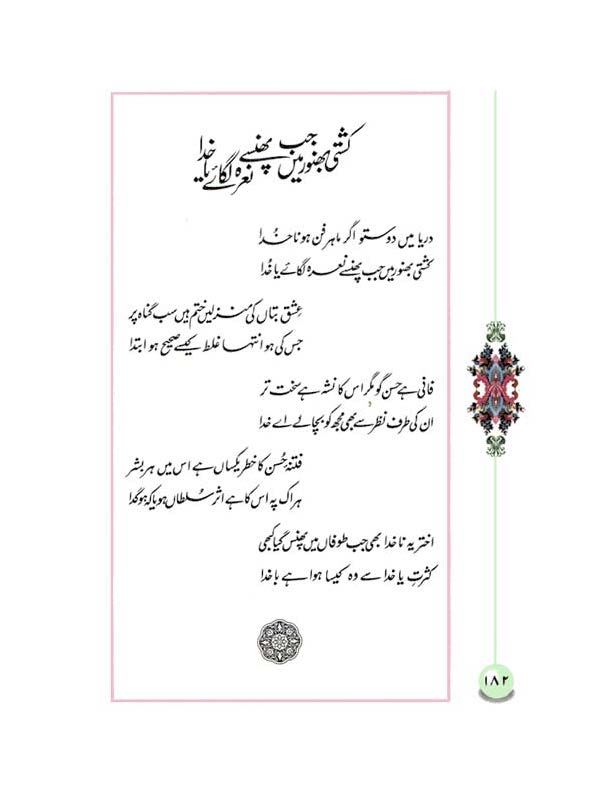 کشتی بھنور میں جب پھنسے نعرہ لگائے یا خدا
دریا میں دوستو اگر ماہر فن ہو ناخدا
کشتی بھنور میں جب پھنسے نعرہ لگائے یا خُدا
عِشق بتاں کی منزلیں ختم ہیں سب گناہ پر
جس کی ہو انتہا غلط کیسے صحیح ہو ابتدا
فانی ہے حسن گو مگر اس کا نشہ ہے سخت تر
ان کی طرف نظر سے بھی مجھ کو بچالے اے خدا
فتنۂ حُسن کا خطر یکساں ہے اس میں ہر بشر
ہر اک پہ اس کا ہے اثر سُلطاں ہو یا کہ ہو گدا
اختر یہ ناخدا بھی جب طوفاں میں پھنس گیا کبھی
کثرتِ یا خدا سے وہ کیسا ہوا ہے باخدا
۱۸۲